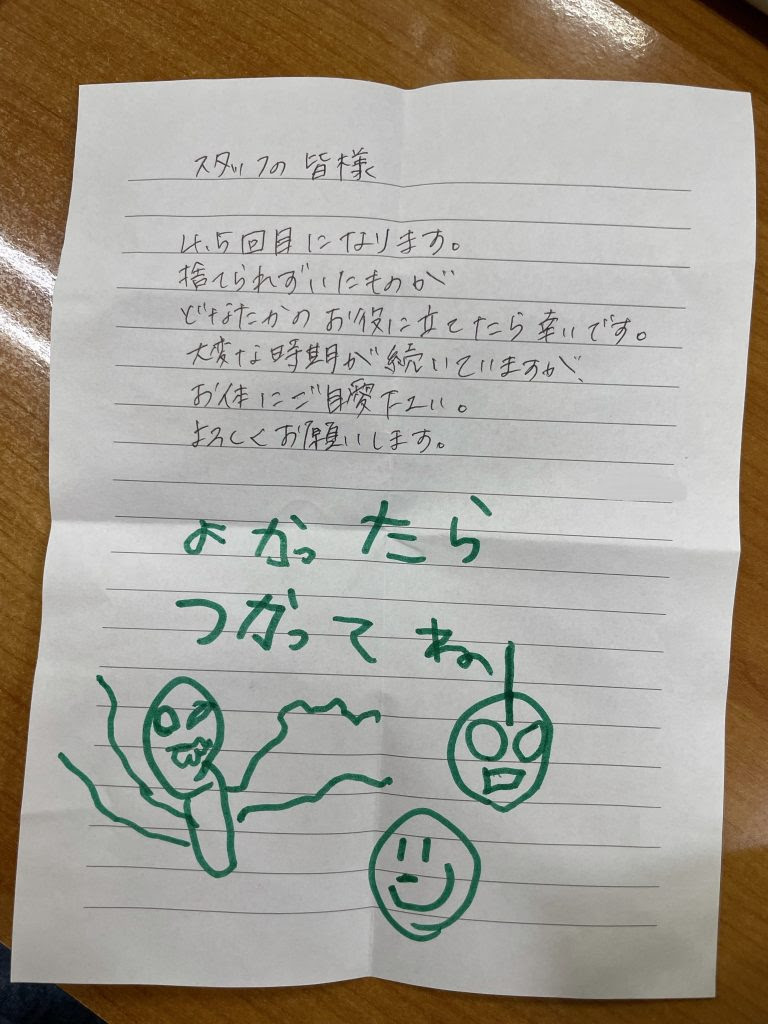 スタッフの皆様
4.5回目になります。
捨てられずいたものが
どなたかのお役に立てたら幸いです。
大変な時期が続いていますが、
お体にご自愛下さい。
よろしくお願いします。
よかったら
つかってね